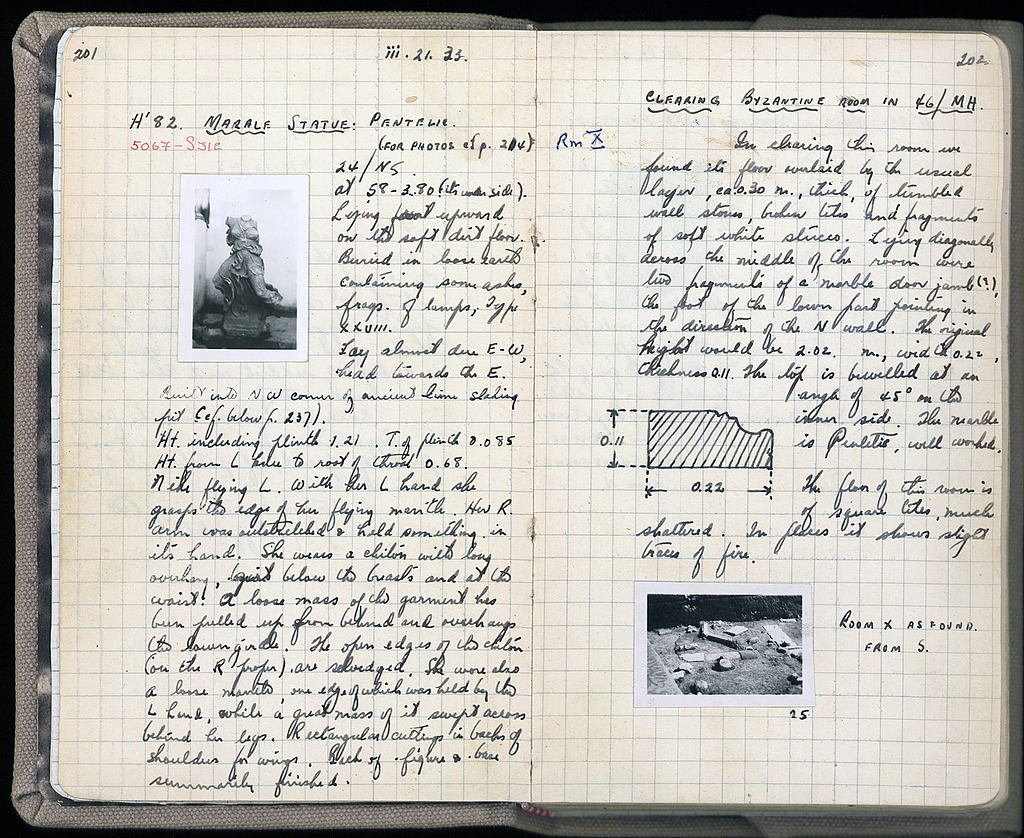 201
iii . 21. 33.
H'82. MARBLE STATUE: PENTELIC.
5067-S312
(FOR PHOTOS cf p. 214)
24/NS
at 58-3.80 (its under side).
Lying front upward
on the soft dirt floor.
Buried in loose earth
containing some ashes,
frags. of lamps, Type
XXVIII.
Lay almost due E-W,
head towards the E.
Built into NW corner of ancient lime slaking
pit (cf. below p. 237).
Ht. including plinth 1.21 . T. of plinth 0.085
Ht. from L knee to root of throat 0.68.
Nike flying L. With her L hand she
grasps the edge of her flying mantle. Her R
arm was outstretched & held something in
its hand. She wears a chiton with long
overhang, girt below the breasts and at the
waist. A loose mass of the garment has
been pulled up from behind and overhangs
the lower girdle. The open edges of the chiton
(on the R proper) are selvedged. She wore also
a loose mantle, one edge of which was held by the
L hand, while a great mass of it swept across
behind her legs. Rectangular cuttings in backs of
shoulders for wings. Back of figure & base
summarily finished.
202
CLEARING BYZANTINE ROOM IN 46/MH.
Rm X
In clearing this room we
found its floor overlaid by the usual
layer, ca 0.30 m., thick, of tumbled
wall stones, broken tiles and fragments
of soft white stucco. Lying diagonally
across the middle of the room were
two fragments of a marble door jamb (?),
the foot of the lower part pointing in
the direction of the N wall. The original
height would be 2.02 m., width 0.22,
thickness 0.11. The top is bevelled at an
angle of 45° on the
inner side. The marble
is Pentelic, well worked.
0.11
0.22
The floor of this room is
of square tiles, much
shattered. In places it shows slight
traces of fire.
ROOM X AS FOUND.
FROM S.
25